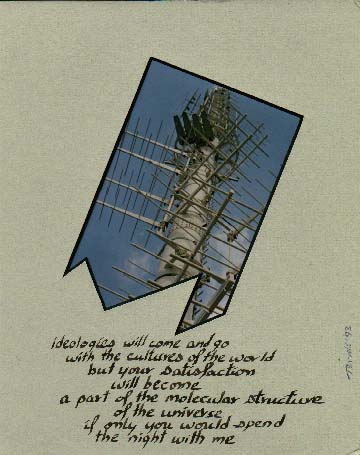 ideologies will come and go
with the cultures of the world
but your satisfaction
will become
a part of the molecular structure
of the universe
if only you would spend
the night with me